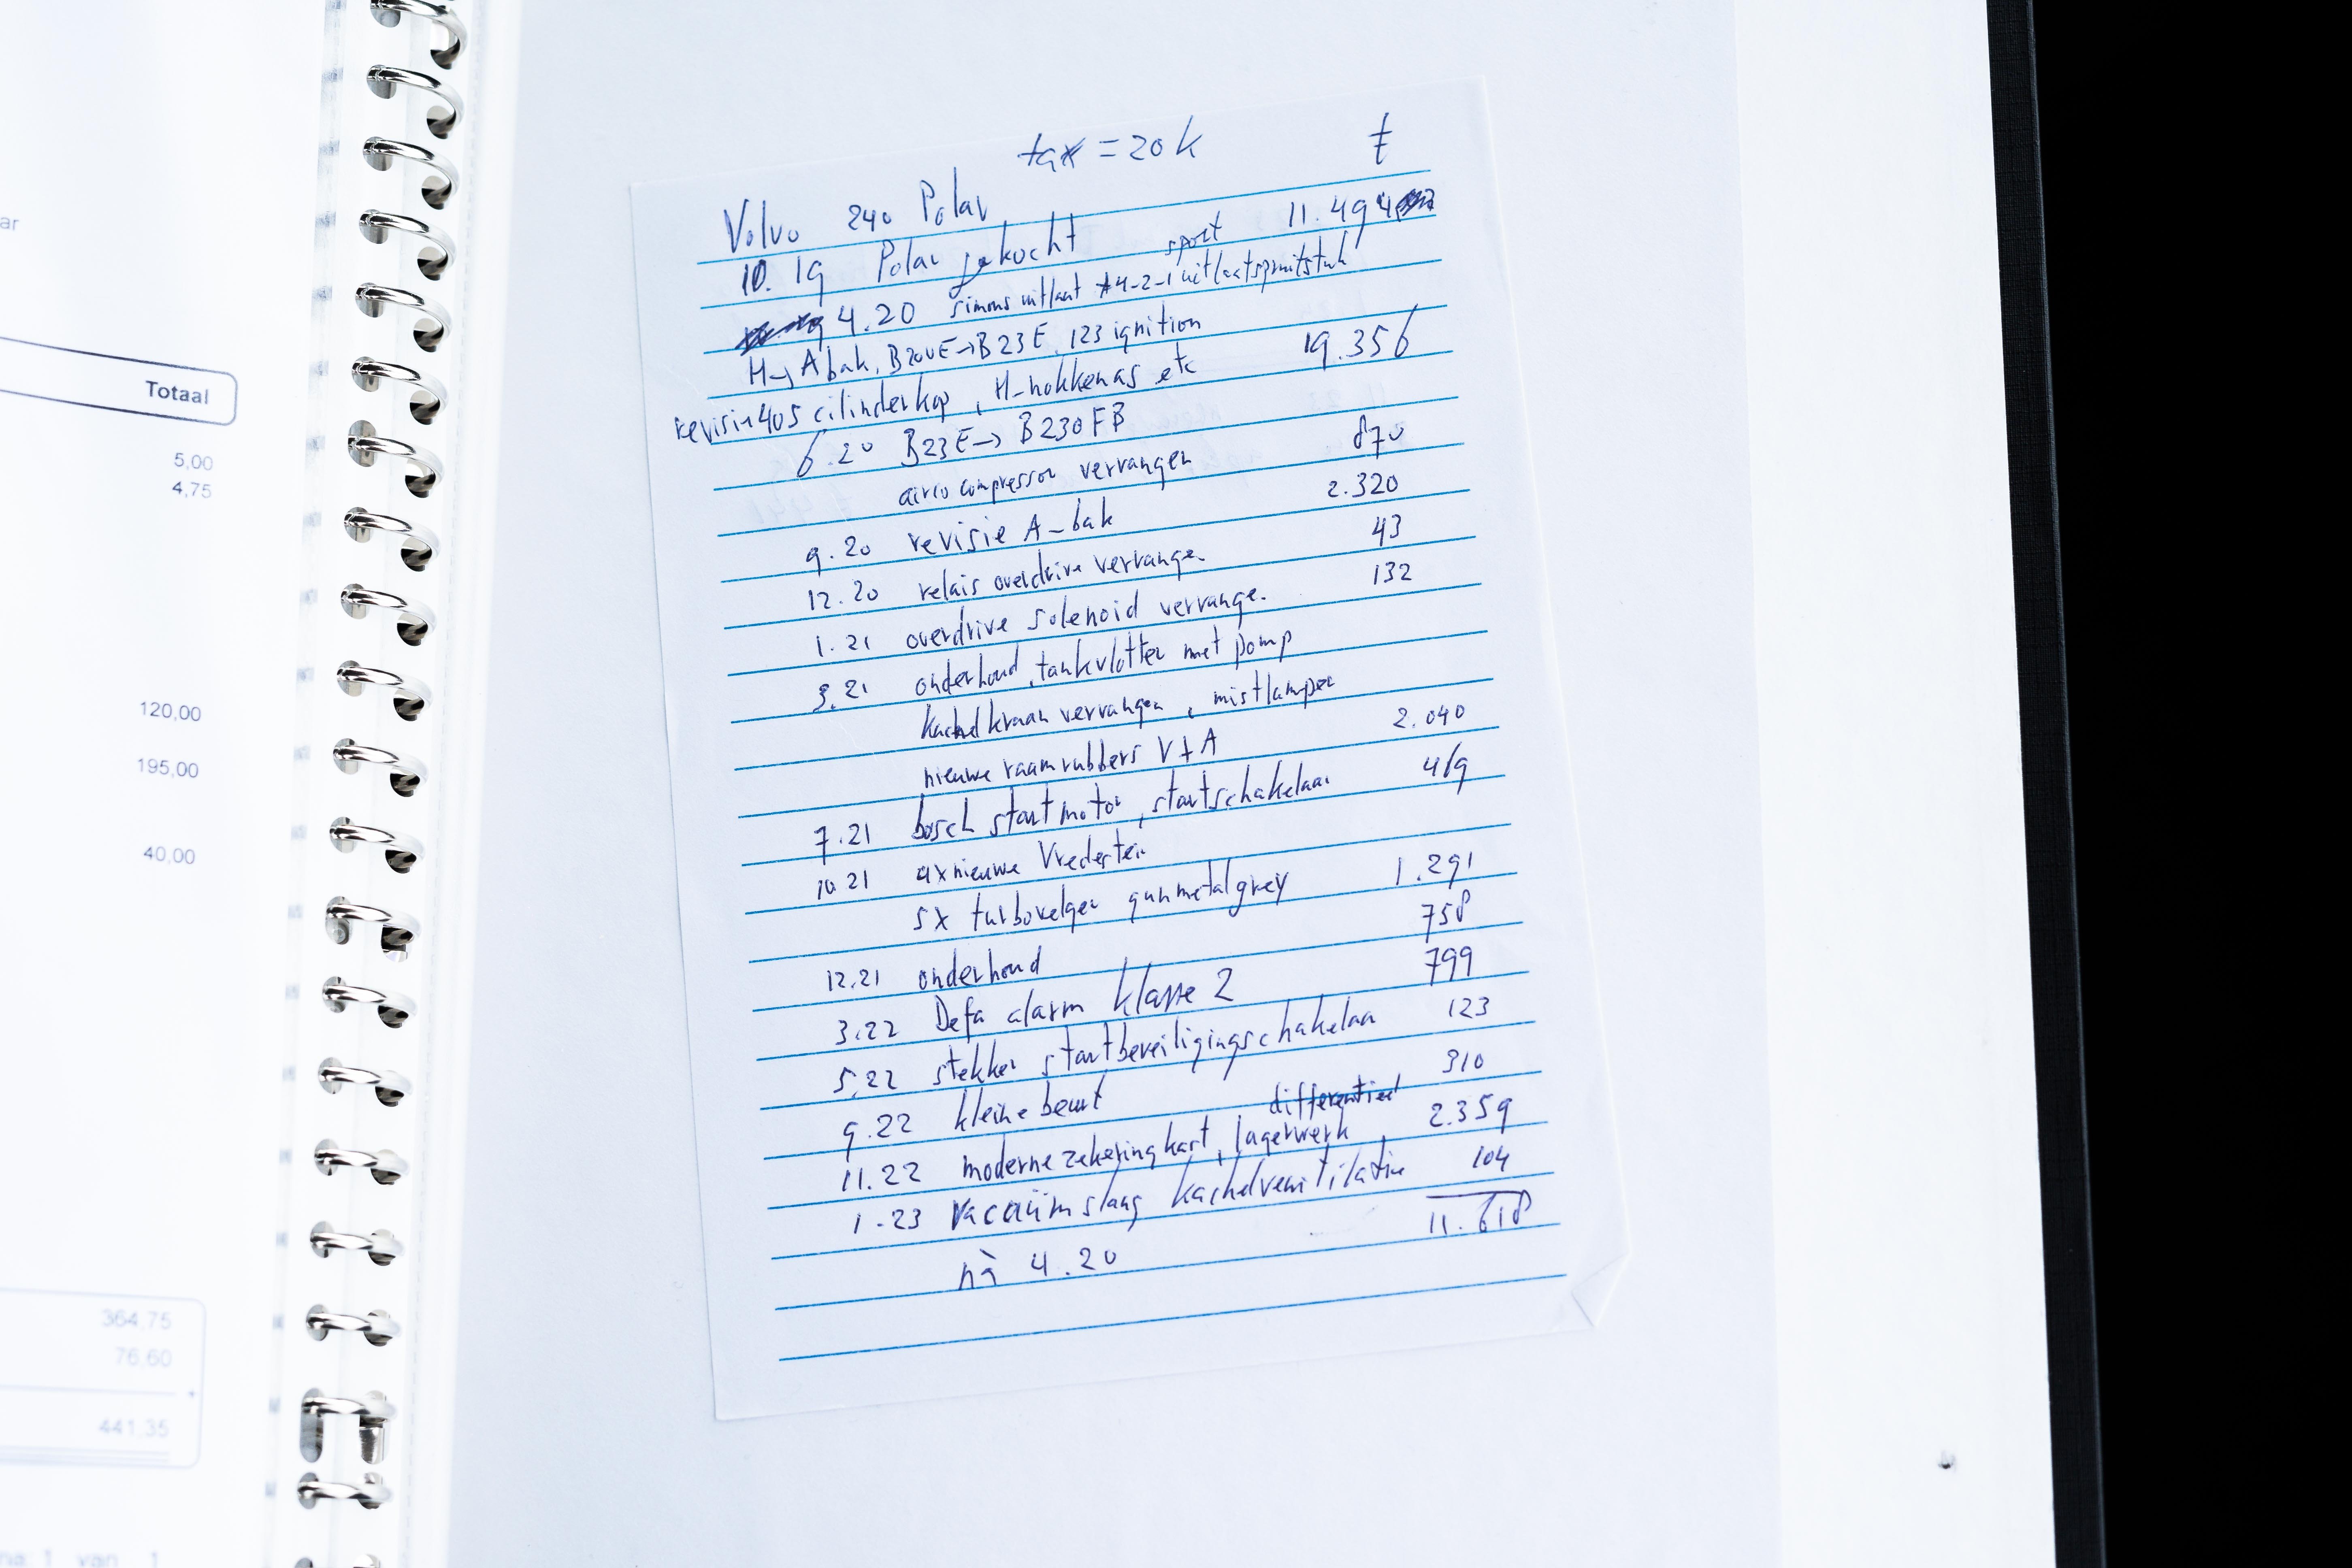 ar
Totaal
5,00
4,75
120,00
195,00
40,00
364,75
76,60
+
441,35
van 1
tax = 20 k
Volvo 240 Polar
10.19 Polar gekocht 11.494
4.20 simons uitlaat 4-2-1 uitlaatspruitstuk
sport
H→A bak, B200E→B23E, 123 ignition
revisie 405 cilinderkop, H-nokkenas etc 19.356
6.20 B23E→B230FB
airco compressor vervangen 870
9.20 revisie A-bak 2.320
12.20 relais overdrive vervange. 43
1.21 overdrive solenoid vervange. 132
3.21 onderhoud, tankvlotter met pomp
kachelkraan vervangen, mistlampen
nieuwe raamrubbers V+A 2.040
7.21 bosch startmotor, startschakelaar 469
10.21 4x nieuwe Vredestein
5x turbovelgen gunmetalgrey 1.291
12.21 onderhoud 758
3.22 Defa alarm klasse 2 799
5.22 stekker startbeveiligingschakelaa 123
9.22 kleine beurt 310
11.22 moderne zekeringkast, lagerwerk differentieel 2.359
1-23 vacuümslang kachelventilatie 104
nà 4.20 11.618